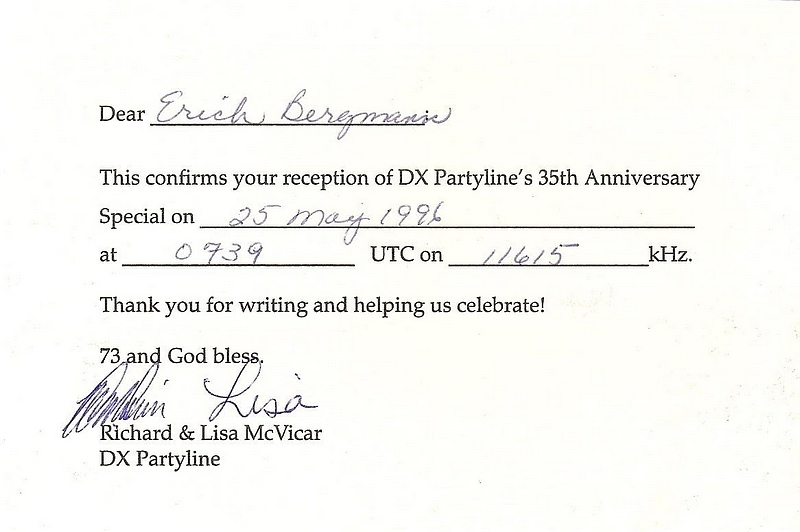 Dear Erich Bergmann
This confirms your reception of DX Partyline's 35th Anniversary
Special on 25 May 1996
at 0739 UTC on 11615 kHz.
Thank you for writing and helping us celebrate!
73 and God bless.
Lisa
Richard & Lisa McVicar
DX Partyline